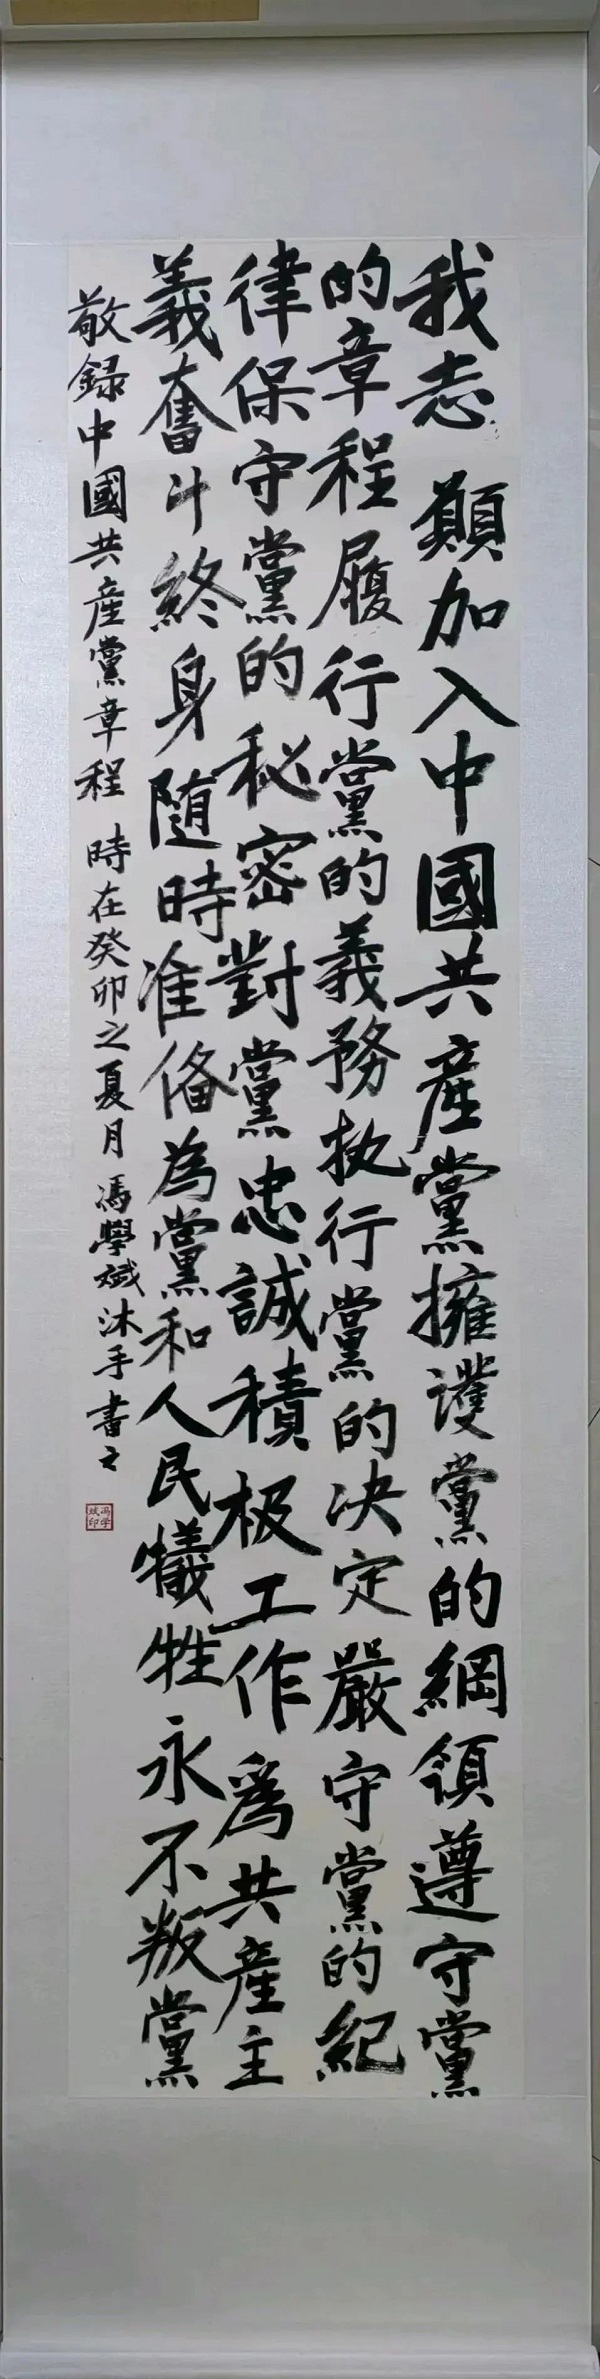 我志願加入中國共産黨擁護黨的綱領遵守黨
的章程履行黨的義務执行黨的决定嚴守黨的紀
律保守黨的秘密對黨忠誠積极工作為共産主
義奮斗終身隨時准俻為黨和人民犠牲永不叛黨
敬録中國共産黨章程 時在癸卯之夏月 馮學斌沐手書之
冯学斌印